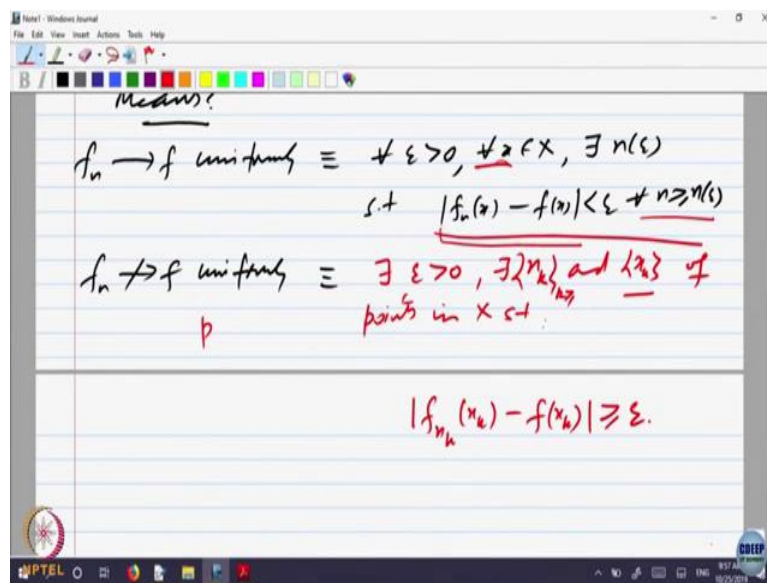 Note1 - Windows Journal
File Edit View Insert Actions Tools Help
B I
Means?
fn → f uniformly ≡ ∀ ε>0, ∀ x ∈ X, ∃ n(ε)
s.t |fn(x) − f(x)| < ε ∀ n ≥ n(ε)
fn ↛ f uniformly ≡ ∃ ε>0, ∃ {nk}k≥1 and {xk} of
points in X s.t.
p
|fnk(xk) − f(xk)| ≥ ε.
NPTEL
CDEEP
ENG
9:57 AM
10/25/2019